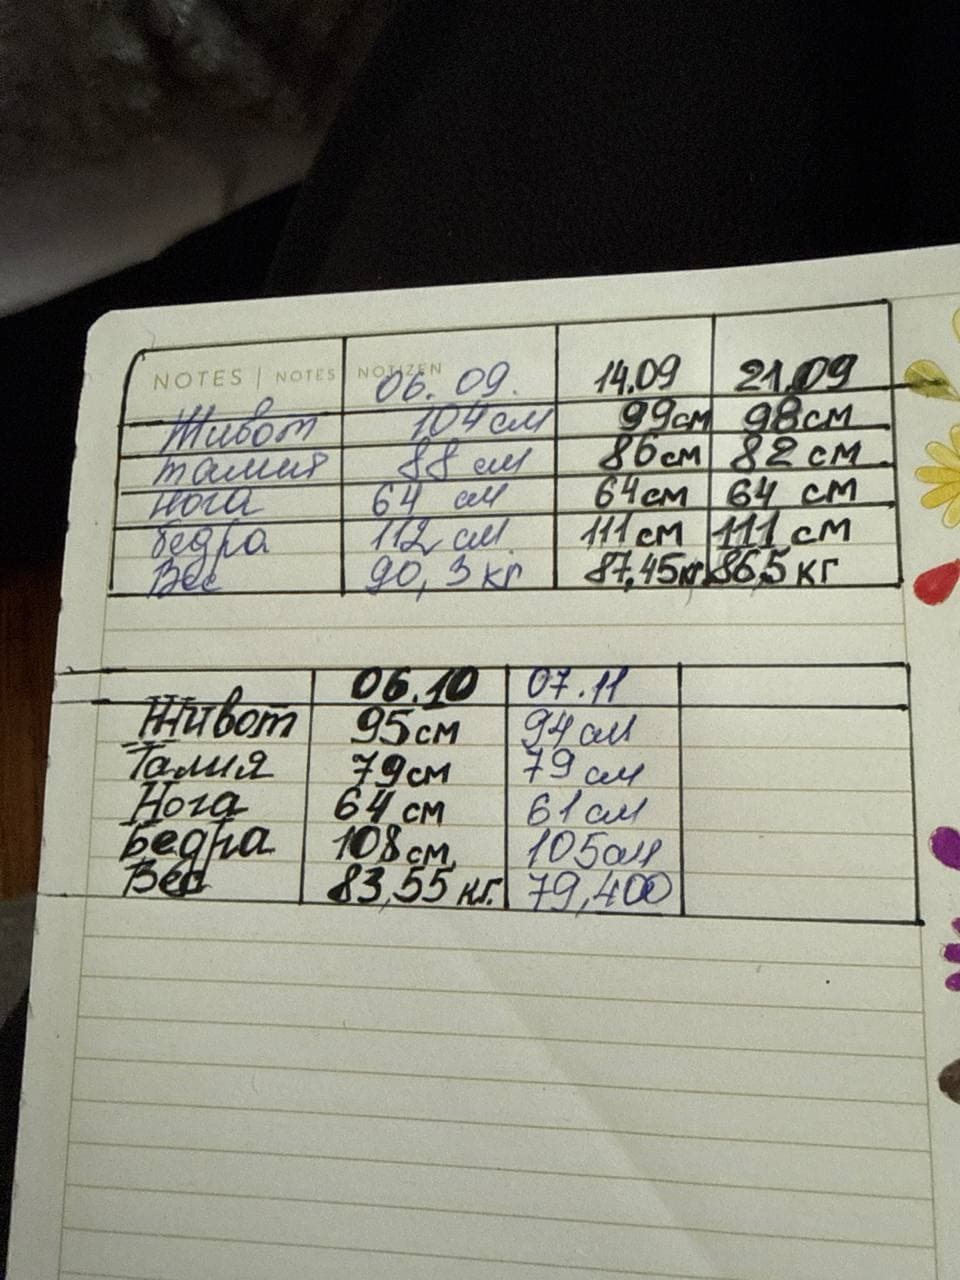 NOTES | NOTES | NOTIZEN
06.09. 14.09 21.09
Живот 104 см 99см 98см
талия 88 см 86см 82 см
Нога 64 см 64см 64 см
бедра 112 см. 111см 111 см
Вес 90,3 кг 87,45кг 86,5 кг
06.10 07.11
Живот 95см 94 см
Талия 79см 79 см
Нога 64 см 61 см
Бедра 108см, 105см
Вес 83,55 кг. 79,400